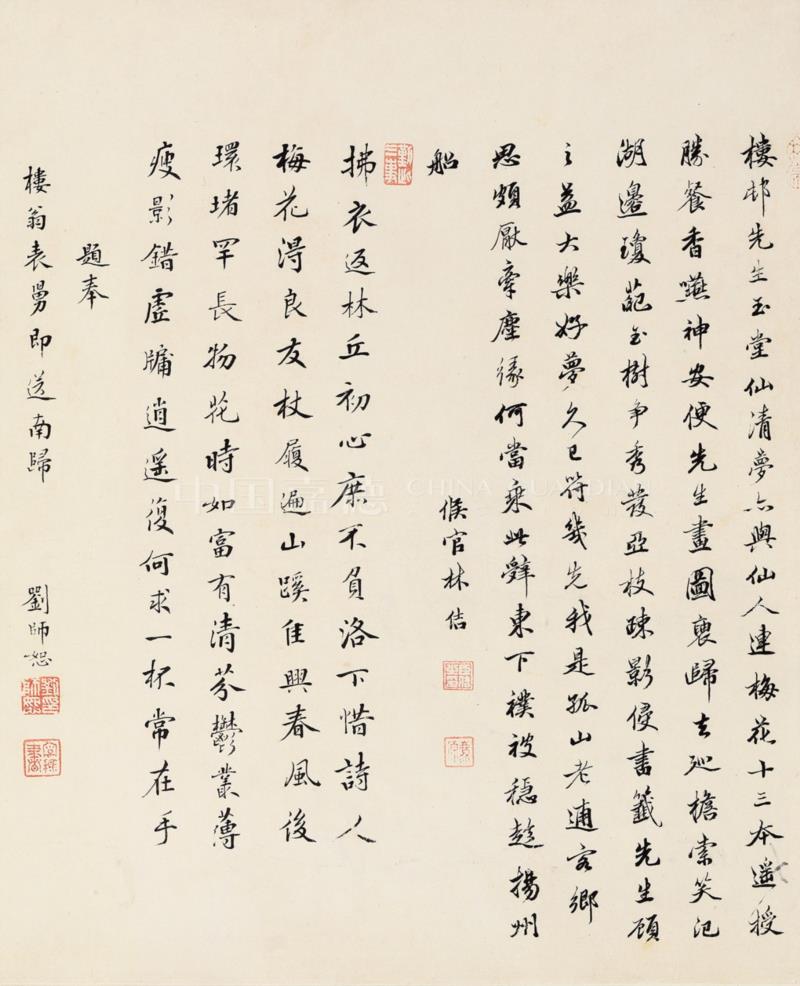 樓邨先生玉堂仙清夢亦與仙人連梅花十三本遥授
勝餐香嚥神安便先生畫圖裹歸去巡檐索笑汜
湖邊瓊葩玉樹爭秀發亞枝疎影侵書籤先生顧
之益大樂好夢久已符幾先我是孤山老逋客鄉
思頗厭牽塵緣何當乘此辭東下襆被穩趁揚州
船
候官林佶
拂衣返林丘初心庶不負洛下惜詩人
梅花淂良友杖履遍山蹊佳興春風後
環堵罕長物花時如富有清芬鬱叢薄
瘦影錯虛牖逍遥復何求一杯常在手
題奉
樓翁表舅即送南歸
劉師恕
中国嘉德 CHINA GUARDIAN